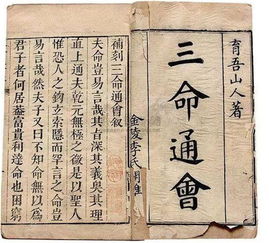 育吾山人著
三命通會
金陵李氏
補刻三命通會叙
夫命豈易言哉其旨深其義奥其理
直上通夫乾元無極之後是以聖人
惟恐人之鈎玄索隱而罕言之命豈
易言哉然夫子又曰不知命無以爲
君子者何居葢富貴利達命也困窮